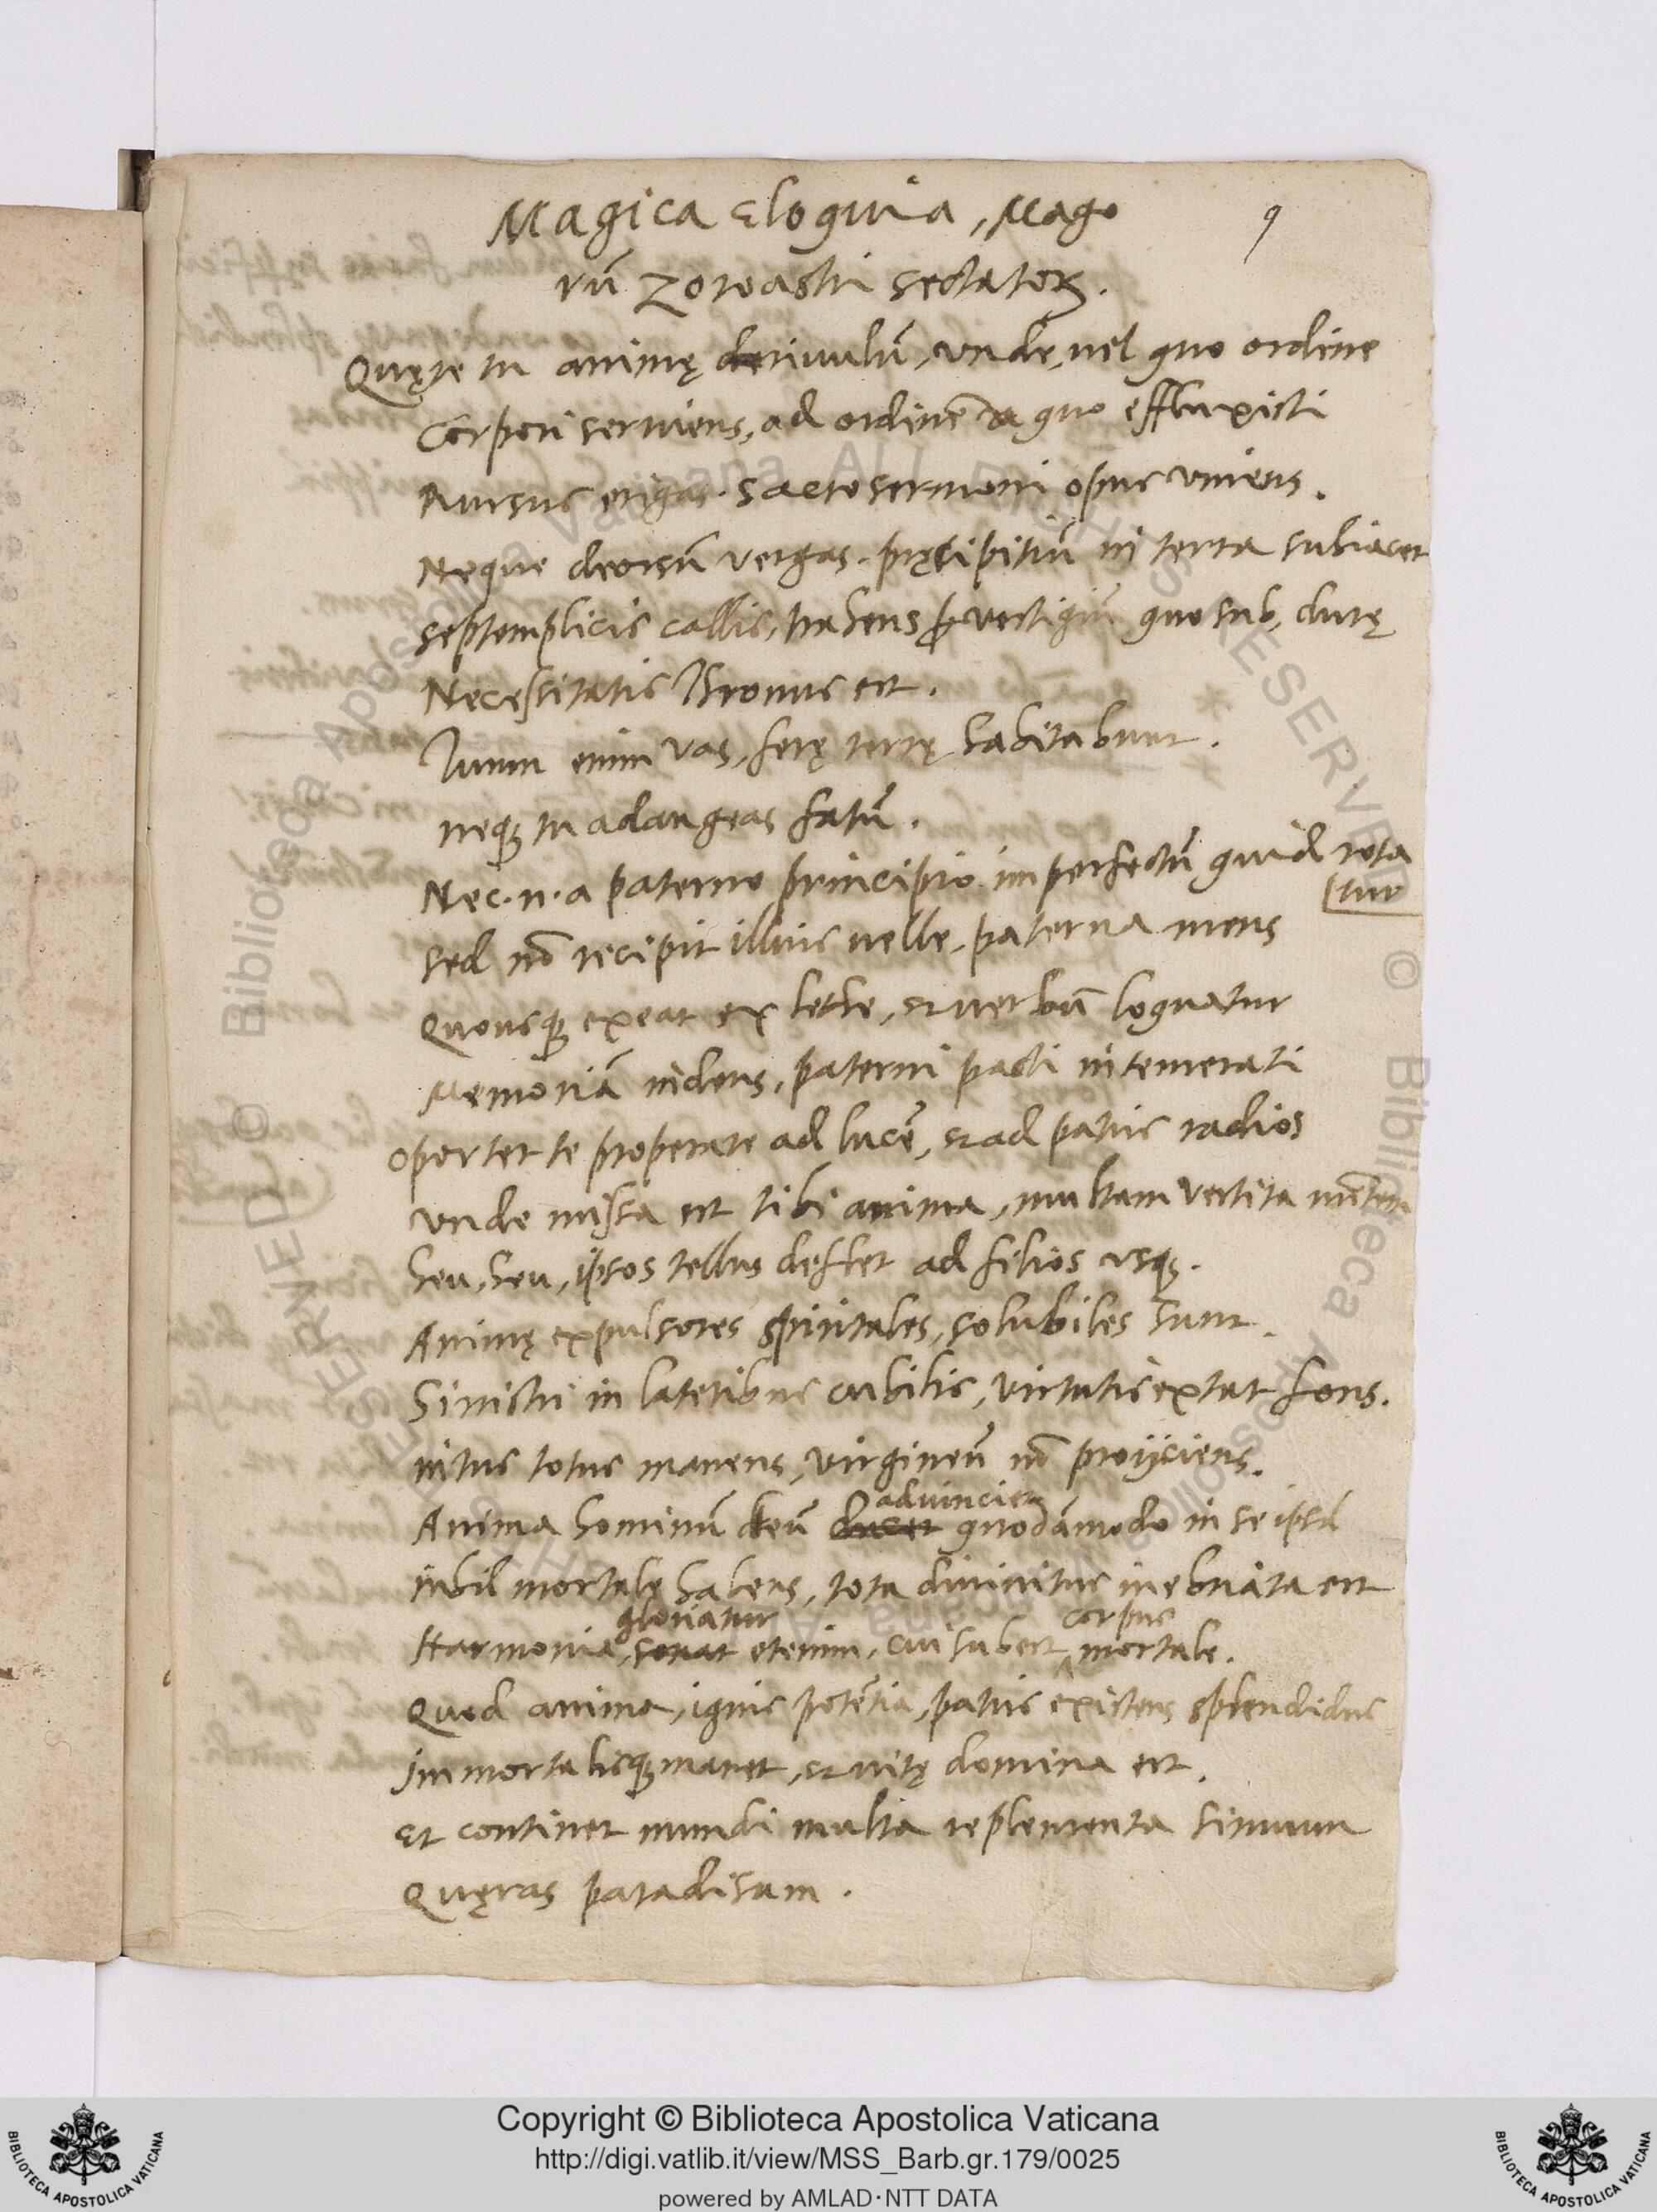 Magica Eloquia, Mago
rū Zoroastri sectatoꝝ.
9
Quęre tu animę deriuulū, vnde, uel quo ordine
Corpori seruiens, ad ordinē a quo effluxisti
Rursus erigas. Sacro sermoni opus vniens.
Neque deorsū vergas. pręcipitiū in terra subiacet
septemplicis callis, trahens ꝑ vestigiū quo sub, durę
Necessitatis Thronus est.
Tuum enim vas, ferę terrę habitabunt.
neqꝫ tu adaugeas fatū.
Nec.n. a paterno principio imperfectū quid rota
(tur
sed nō recipit illius uelle, paterna mens
Quousqꝫ exeat ex lethe, & uerbū loquatur
Memoriā indens, paterni pacti intemerati
oportet te properare ad lucē, & ad patris radios
vnde missa est tibi anima, multam vestita mētem
heu, heu, ipsos tellus deflet ad filios usqꝫ.
Animę expulsores spiritales, solubiles sunt.
Sinistri in lateribus cubilis, virtutis extat fons.
intus totus manens, virgineū nō proijciens.
advinciet
Anima hominū deū ducet quodāmodo in se ipsā
nihil mortale habens, tota divinitus inebriata est
gloriatur corpus
Harmonia, sonat etenim, cui subest mortale.
Quod anima, ignis potētia, patris existens splendidus
immortalisqꝫ manet, & uitę domina est.
Et continet mundi multa replementa sinuum
Quęras paradisum.
Copyright © Biblioteca Apostolica Vaticana
http://digi.vatlib.it/view/MSS_Barb.gr.179/0025
powered by AMLAD·NTT DATA
BIBLIOTECA APOSTOLICA VATICANA
BIBLIOTECA APOSTOLICA VATICANA